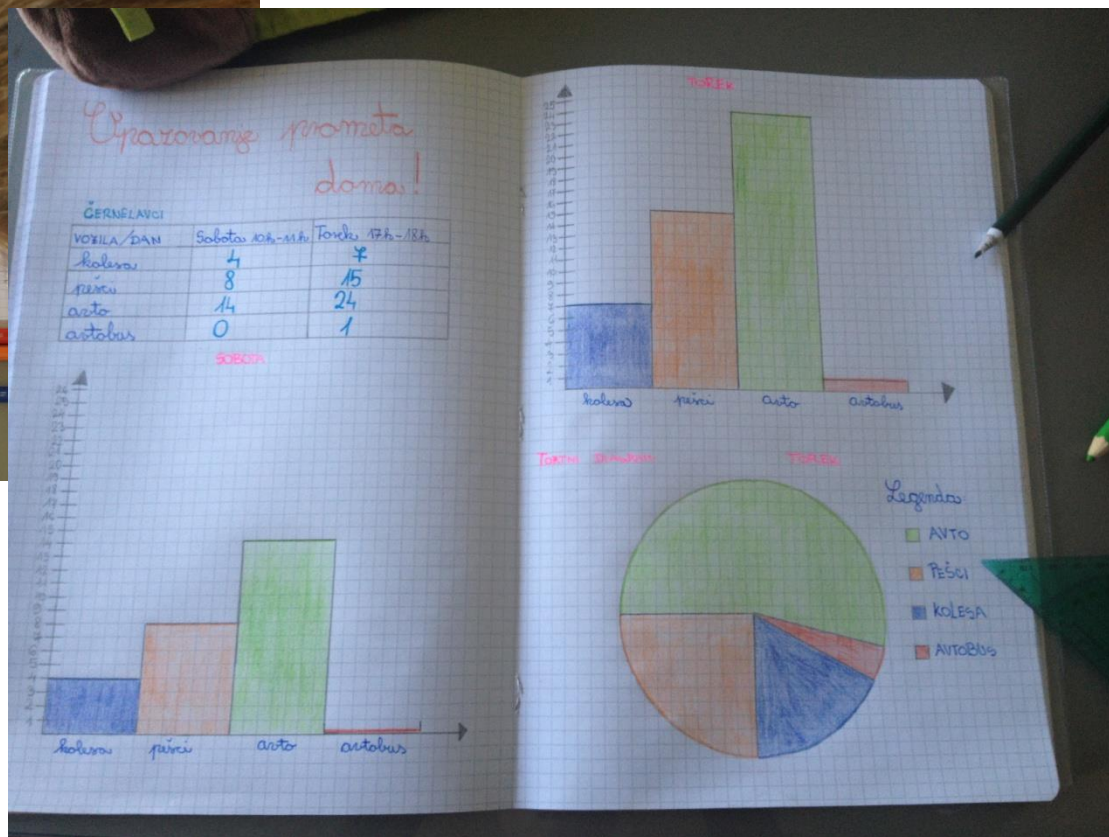 Opazovanje prometa
doma!
ČERNELAVCI
VOZILA/DAN Sobota 10h-11h Torek 17h-18h
kolesa 4 7
pešci 8 15
avto 14 24
avtobus 0 1
SOBOTA
kolesa pešci avto avtobus
TOREK
kolesa pešci avto avtobus
TORTNI TOREK
Legenda:
AVTO
PEŠCI
KOLESA
AVTOBUS